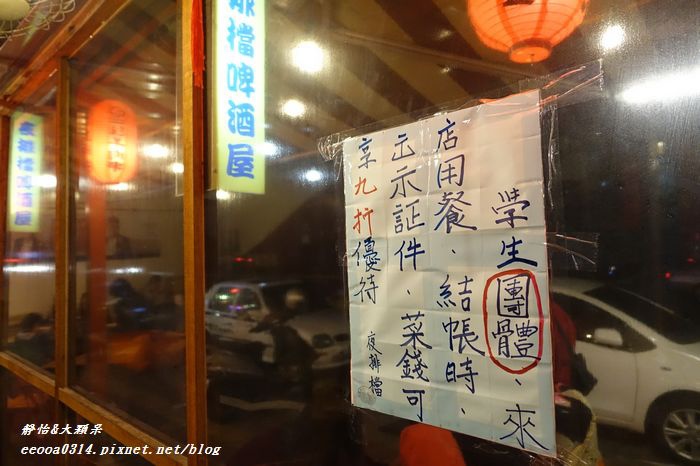 學生團體、來
店用餐、結帳時、
出示証件、菜錢可
享九折優待
夜排檔
排檔啤酒屋
靜怡&大顆呆
eeooa0314.pixnet.net/blog